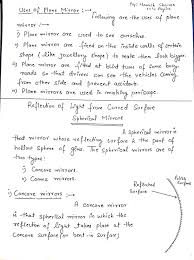 Uses of Plane Mirror :-
Following are the uses of plane
mirror :-
i) Plane mirror are used to see ourselves.
ii) Plane mirror are fixed on the inside walls of certain
shops (like jewellery shops) to make them look bigger.
iii) Plane mirror are fitted at blind turns of some busy
roads so that drivers can see the vehicles coming
from other side and prevent accident.
iv) Plane mirrors are used in making periscope.
Reflection of Light from Curved Surface
Spherical Mirror
A Spherical mirror is
that mirror whose reflecting surface is the part of
hollow sphere of glass. The spherical mirrors are of
two types:
i) Concave mirrors
ii) Convex mirrors
i) Concave mirrors →
A Concave mirror
is that spherical mirror in which the
reflection of light takes place at
the Concave surface (or bent in surface)
Reflected
Surface
Surface